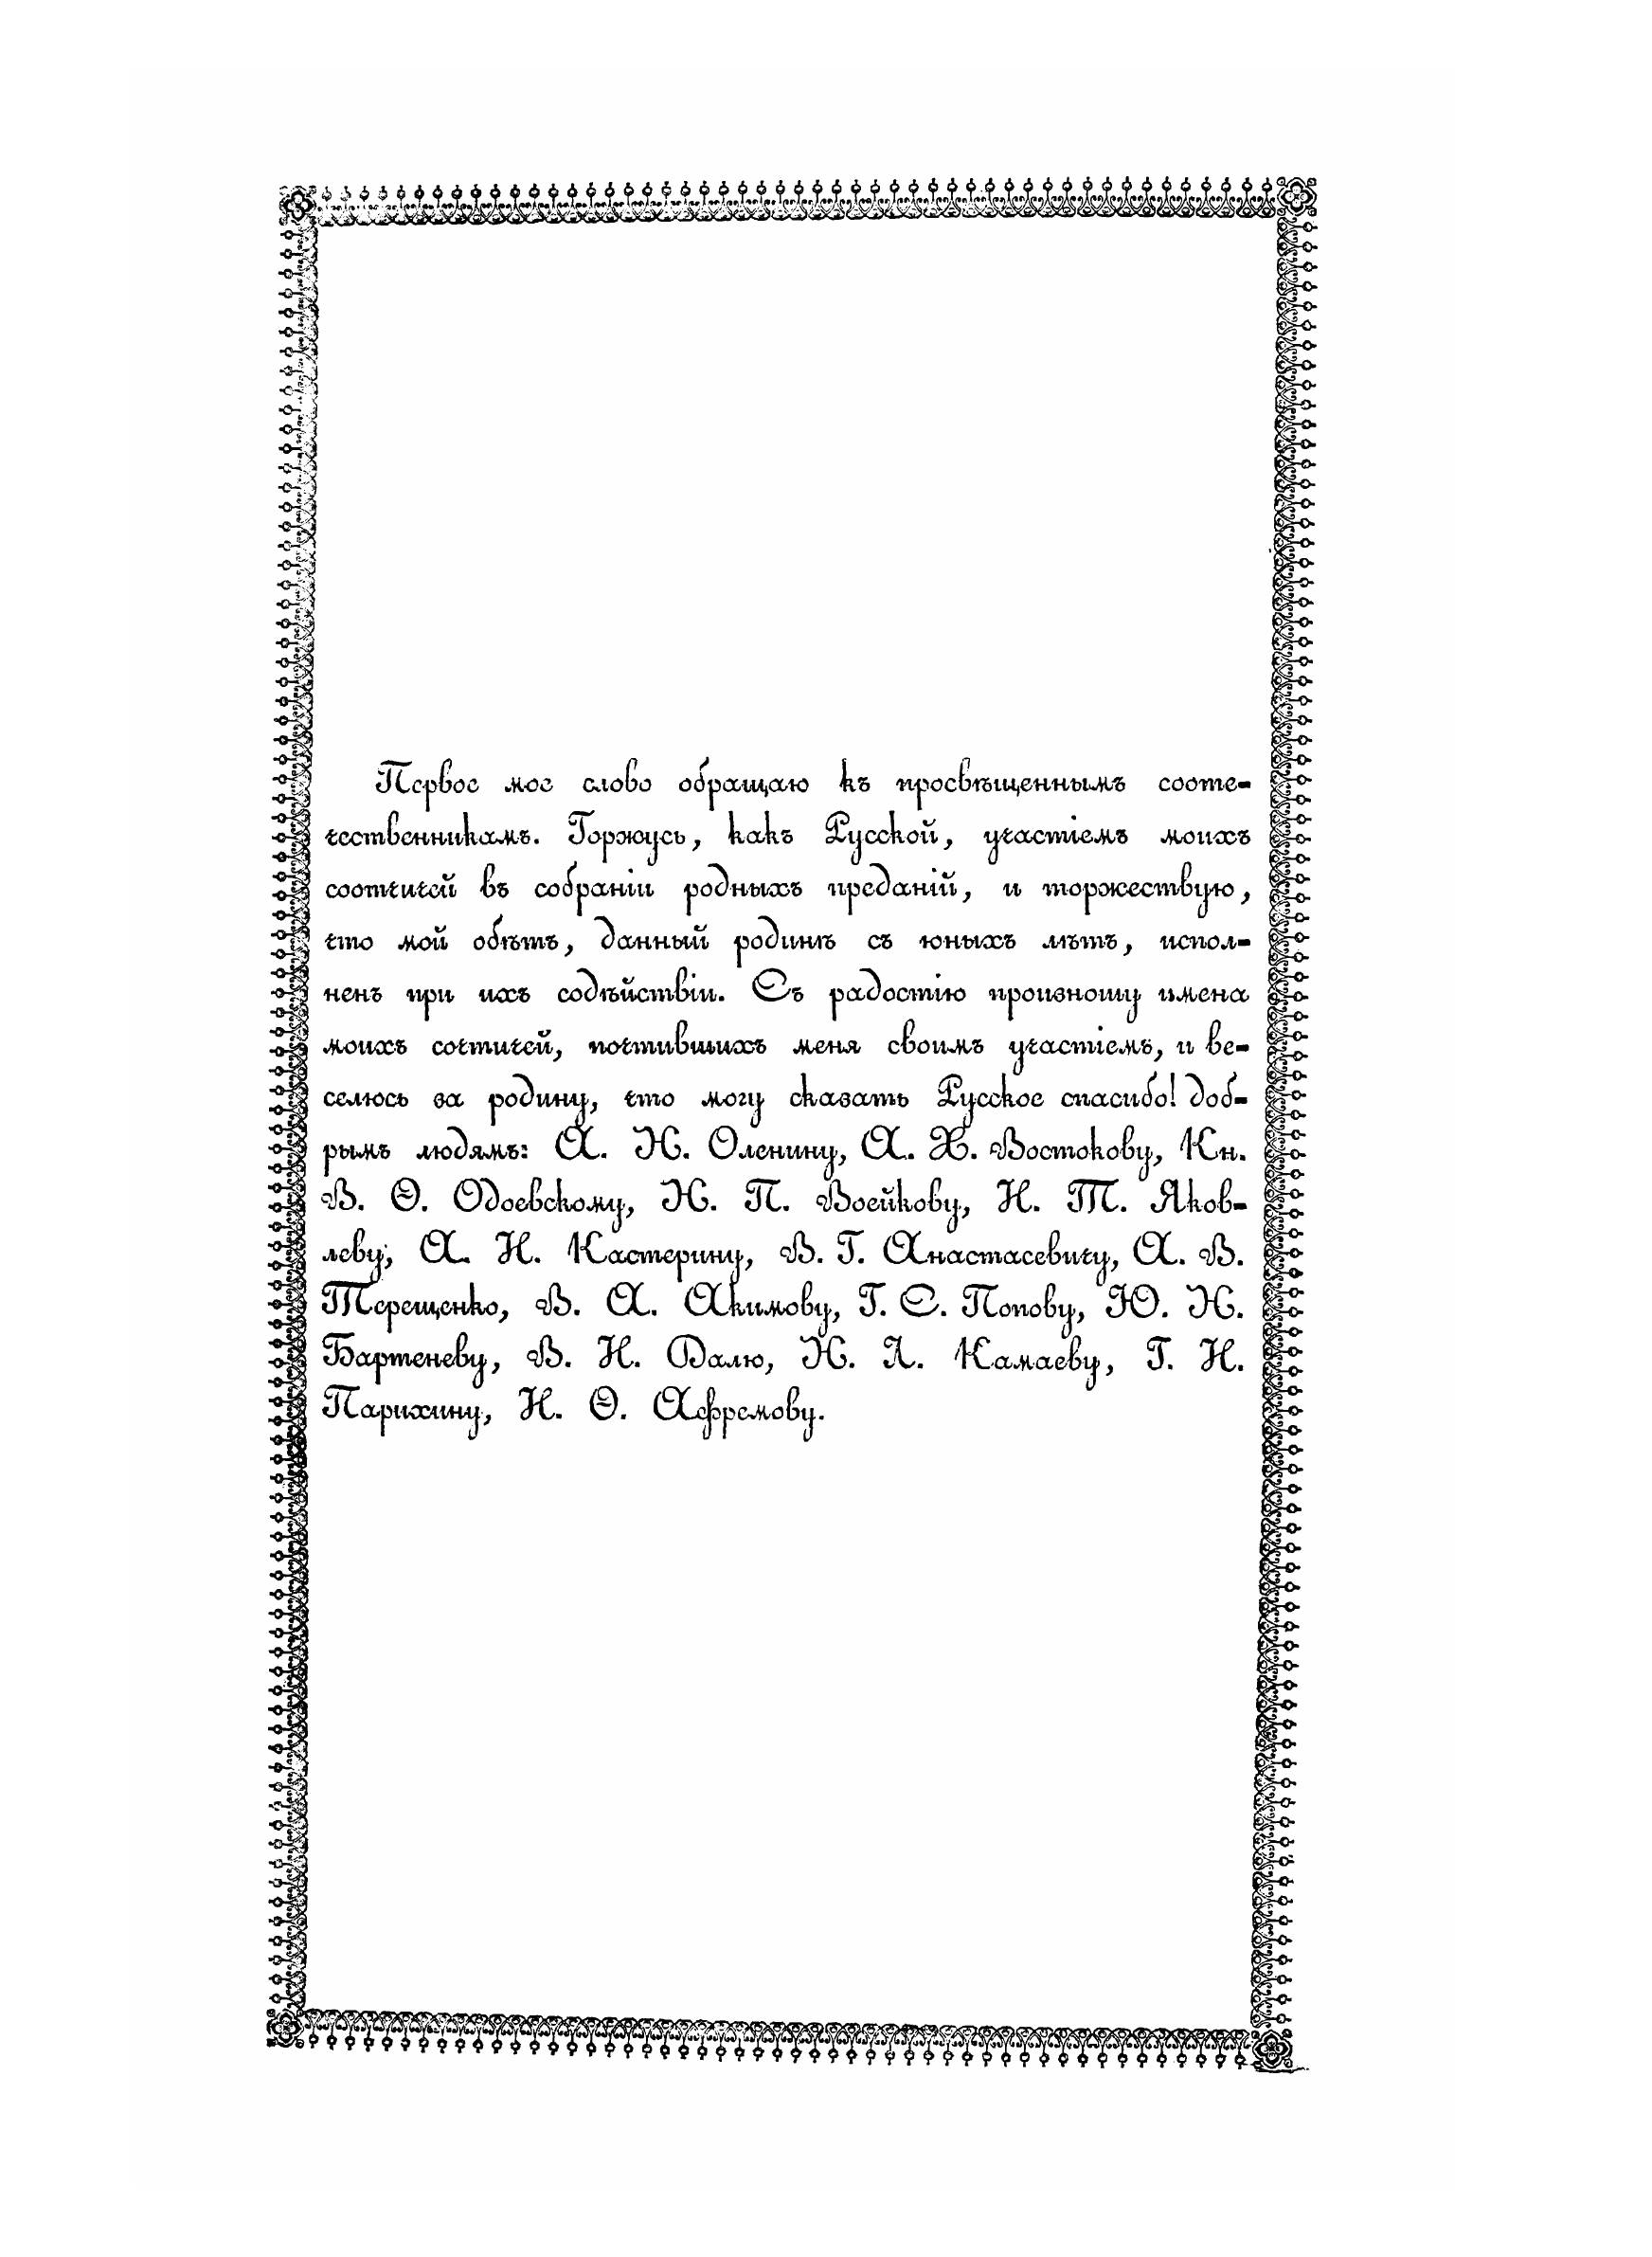 Первое мое слово обращаю къ просвѣщеннымъ сооте-
чественникамъ. Горжусь, какъ Русской, участіемъ моихъ
соотчичей въ собраніи родныхъ преданій, и торжествую,
что мой обѣтъ, данный родинѣ съ юныхъ лѣтъ, испол-
ненъ при ихъ содѣйствіи. Съ радостію произношу имена
моихъ сотчичей, почтившихъ меня своимъ участіемъ, и ве-
селюсь за родину, что могу сказать Русское спасибо! доб-
рымъ людямъ: А. Н. Оленину, А. Х. Востокову, Кн.
В. Ѳ. Одоевскому, Н. П. Воейкову, И. Т. Яков-
леву, А. И. Кастерину, В. Г. Анастасевичу, А. В.
Терещенко, В. А. Акимову, Г. С. Попову, Ю. Н.
Бартеневу, В. И. Далю, Н. Л. Камаеву, Г. И.
Парихину, И. Ѳ. Афремову.